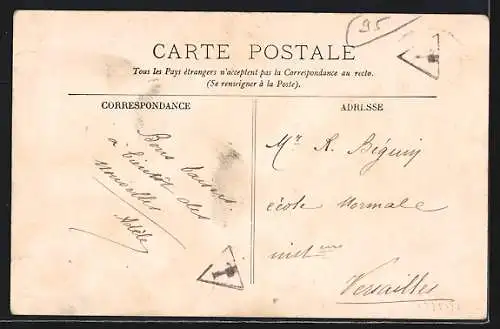 95
CARTE POSTALE
Tous les Pays étrangers n'acceptent pas la Correspondance au recto.
(Se renseigner à la Poste).
CORRESPONDANCE
ADRESSE
Bons baisers
à bientôt des
nouvelles
Adèle
Mr R. Béguin
école Normale
inst
Versailles
T
T